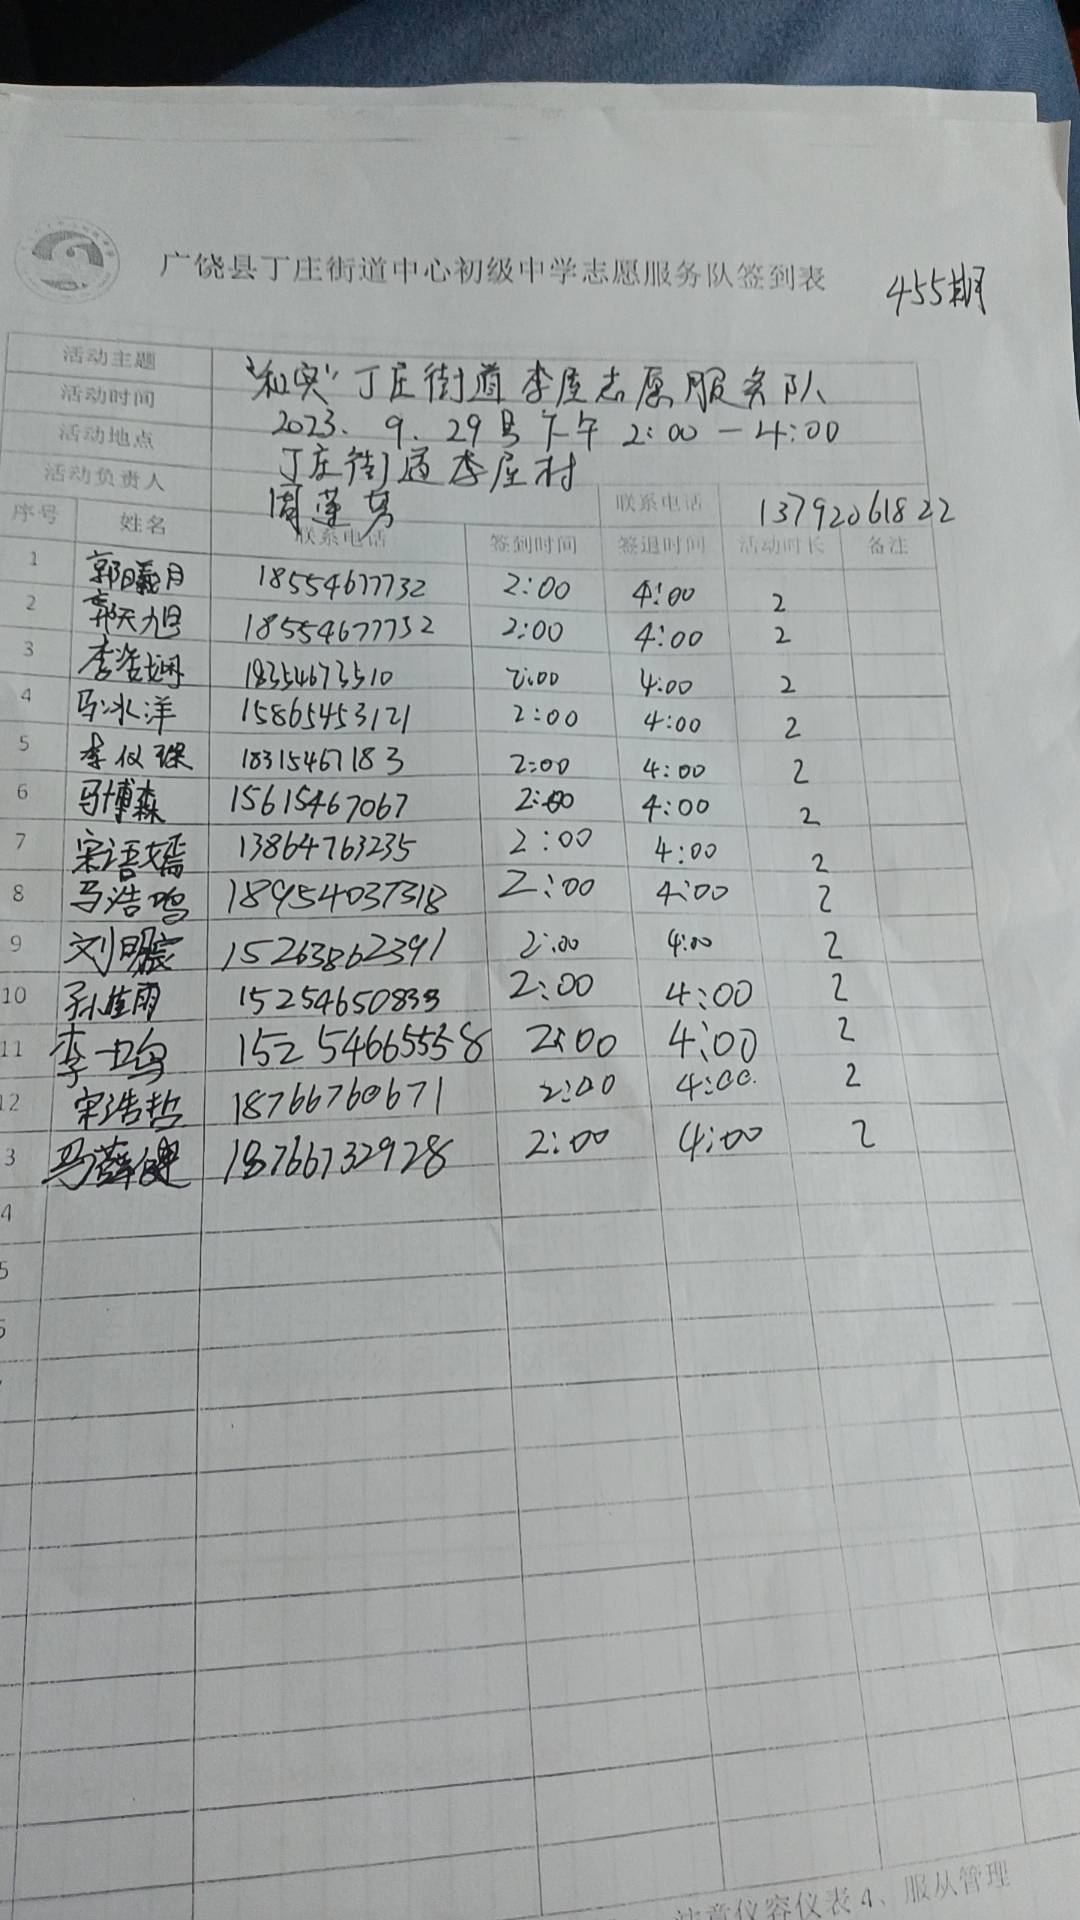 广饶县丁庄街道中心初级中学志愿服务队签到表 455期
活动主题 "和安"丁庄街道李屋志愿服务队
活动时间 2023.9.29号下午 2:00—4:00
活动地点 丁庄街道李屋村
活动负责人 周莲芳 联系电话 13792061822
序号 姓名 联系电话 签到时间 签退时间 活动时长 备注
1 郭曦月 18554677732 2:00 4:00 2
2 郭天旭 18554677732 2:00 4:00 2
3 李浩娴 18354673510 2:00 4:00 2
4 马冰洋 15865453121 2:00 4:00 2
5 李仪琛 18315467183 2:00 4:00 2
6 马博森 15615467067 2:00 4:00 2
7 宋语嫣 13864763235 2:00 4:00 2
8 马浩鸣 18954037318 2:00 4:00 2
9 刘明宸 15263862391 2:00 4:00 2
10 孙佳雨 15254650833 2:00 4:00 2
11 李一鸣 15254665558 2:00 4:00 2
12 宋浩哲 18766760671 2:00 4:00 2
3 马薛健 18766732928 2:00 4:00 2
4
5
注意仪容仪表 4、服从管理